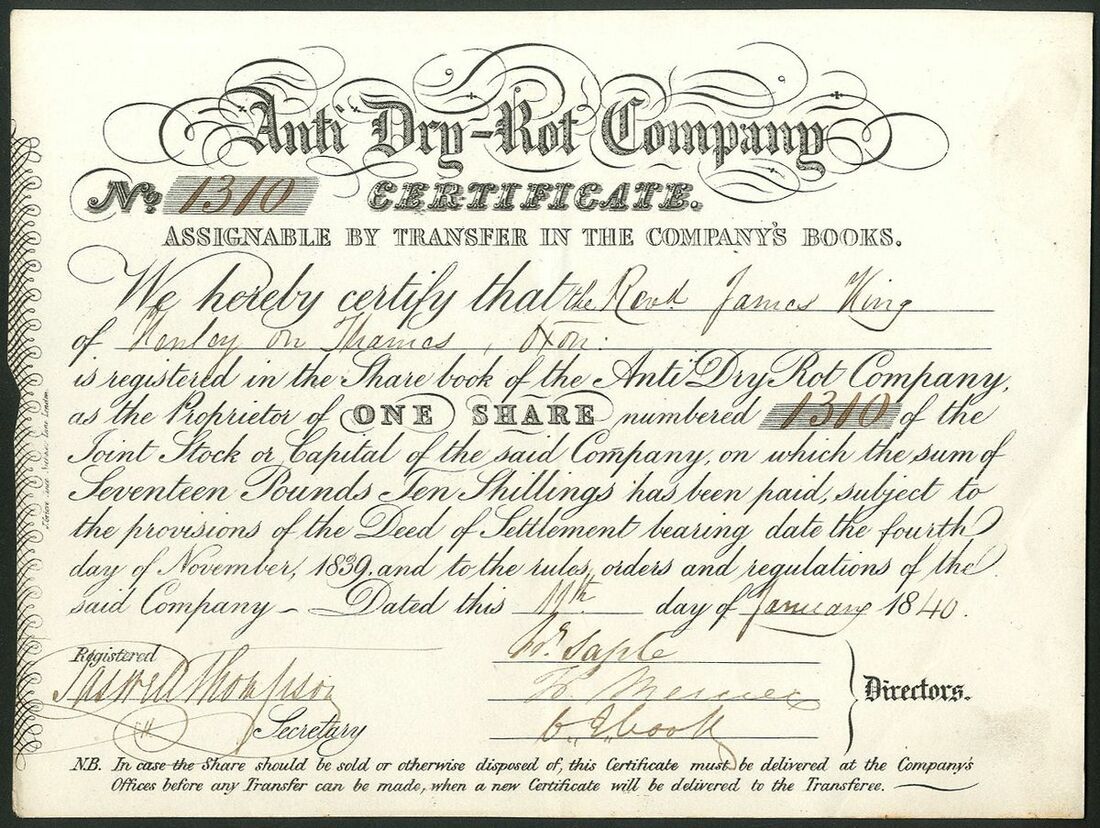 Anti Dry-Rot Company
No. 1310 CERTIFICATE.
ASSIGNABLE BY TRANSFER IN THE COMPANY'S BOOKS.
We hereby certify that the Revd. James King
of Henley on Thames, Oxon.
is registered in the Share book of the Anti Dry Rot Company,
as the Proprietor of ONE SHARE numbered 1310 of the
Joint Stock or Capital of the said Company, on which the sum of
Seventeen Pounds Ten Shillings has been paid, subject to
the provisions of the Deed of Settlement bearing date the fourth
day of November, 1839. and to the rules, orders and regulations of the
said Company – Dated this day of January 1840.
Registered
Thompson
Secretary
Directors.
N.B. In case the Share should be sold or otherwise disposed of, this Certificate must be delivered at the Company's
Offices before any Transfer can be made, when a new Certificate will be delivered to the Transferee.